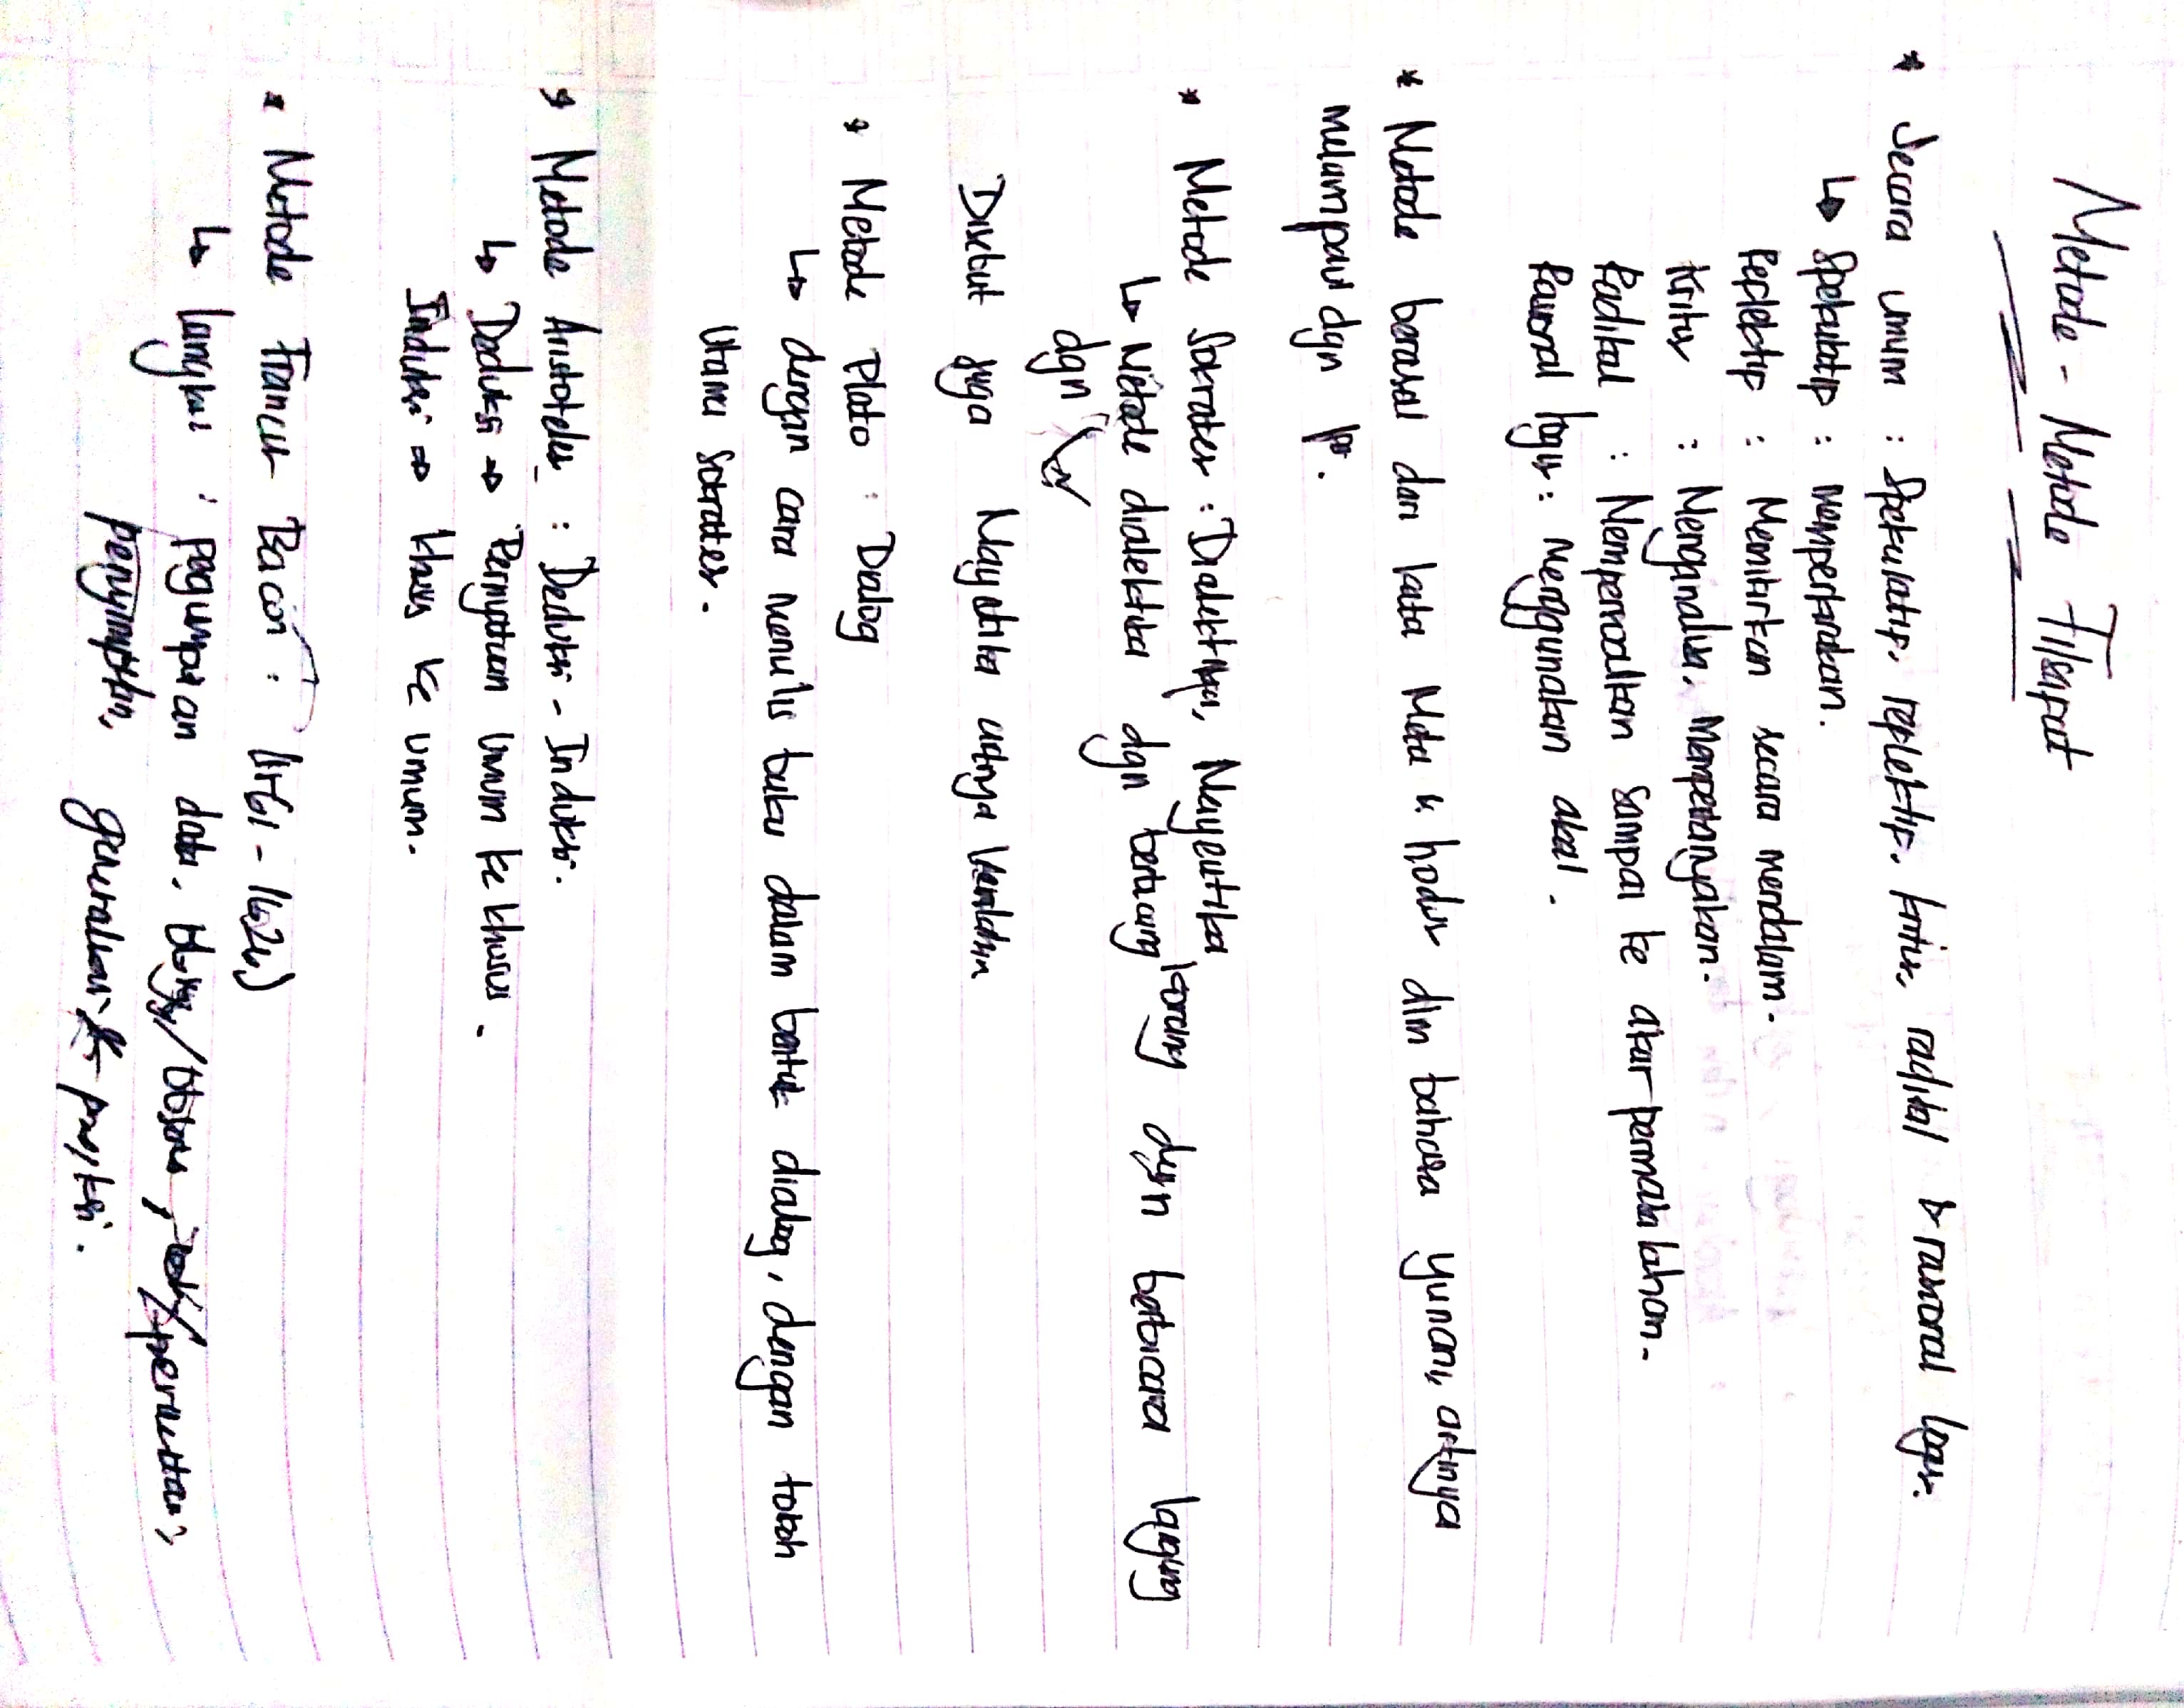 Metode - Metode Filsapat
* Secara umum : Spekulatip, replektip, kritis, radikal & rasional logis.
↳ Spekulatip : memperkirakan.
Replektip : Memikirkan secara mendalam.
Kritis : Menganalisa, Mempertanyakan.
Radikal : Mempersoalkan sampai ke akar permasalahan.
Rasional logis : Menggunakan akal.
* Metode berasal dari kata Meta & hodos dlm bahasa yunani, artinya
melampaui dgn
* Metode Sokrates : Dialektika, Mayeutika
↳ Metode dialektika dgn berbicara langsung
dgn
Disebut juga Mayetika artinya
* Metode Plato : Dialog
↳ dengan cara menulis buku dalam bentuk dialog, dengan tokoh
utama Sokrates.
* Metode Aristoteles : Deduksi - Induksi.
↳ Deduksi ⇒ Pernyataan umum ke khusus.
Induksi ⇒ khusus ke umum.
* Metode Francis Bacon : (1561 - 1626)
↳ langkah : pegumpulan data,
penyimpulan, generalisasi prediksi.